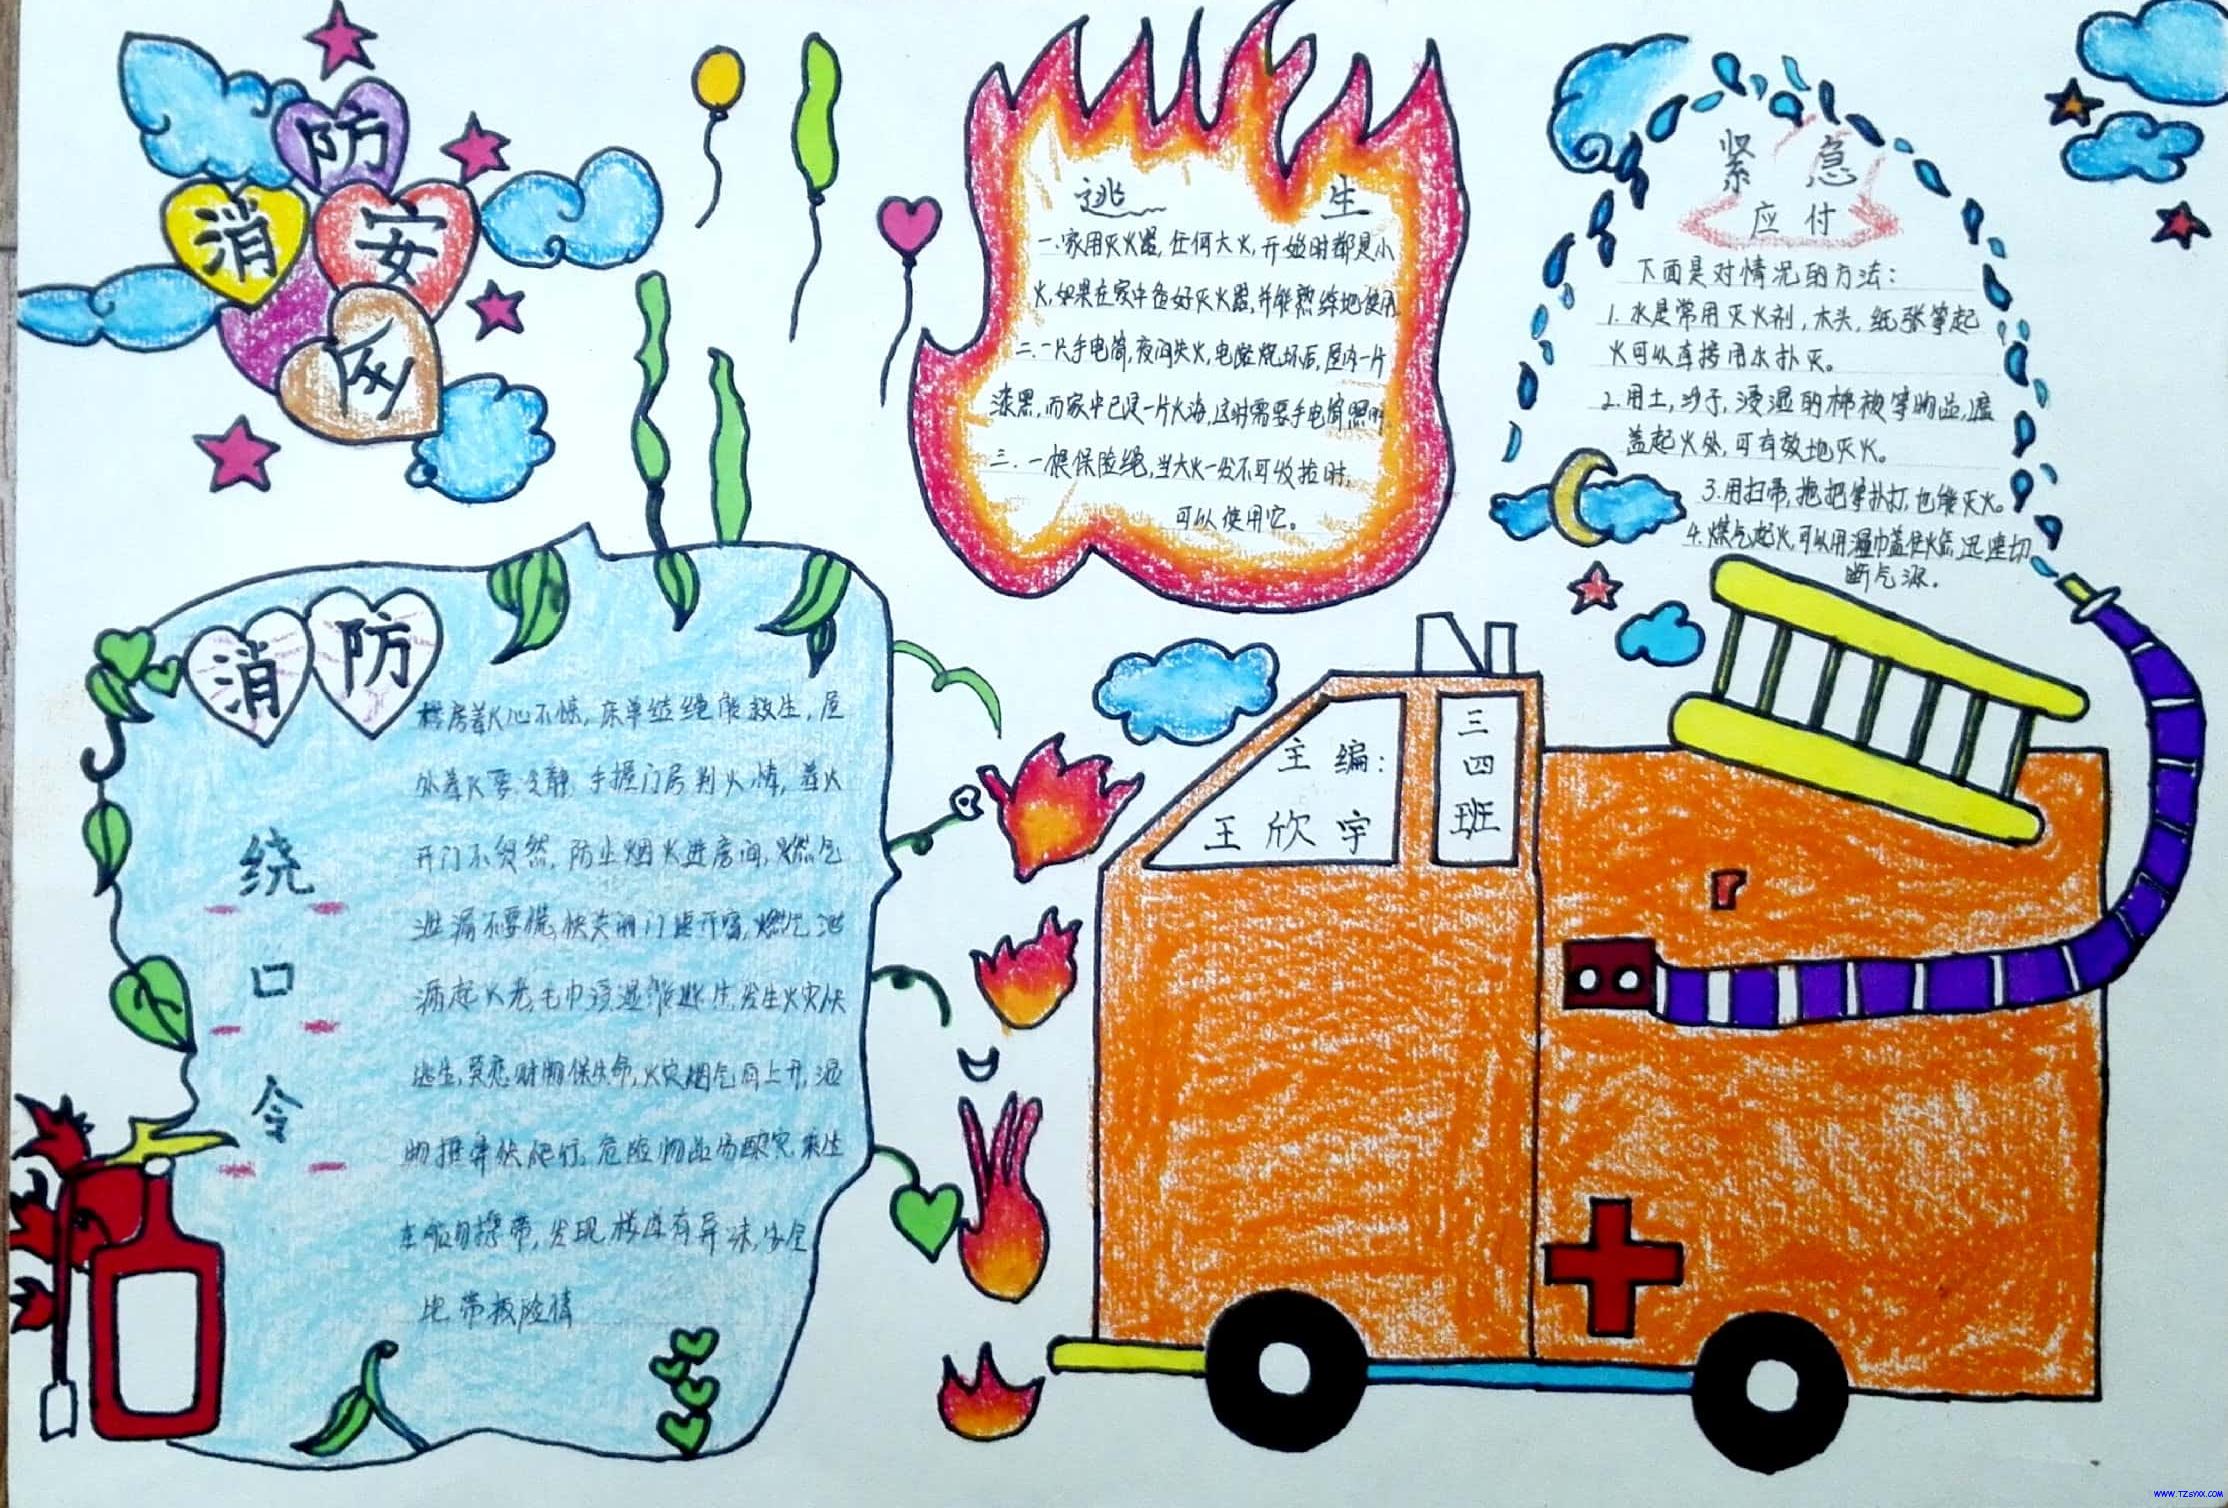 消防安全
逃生
一.家用灭火器,任何大火,开始时都是小
火,如果在家中备好灭火器,并能熟练地使用.
二.一片手电筒,夜间失火,电路烧坏后,屋内一片
漆黑,而家中已是一片火海,这时需要手电筒照明.
三.一根保险绳,当大火一发不可收拾时,
可以使用它。
紧急
应付
下面是对情况的方法:
1.水是常用灭火剂,木头,纸张等起
火可以直接用水扑灭。
2.用土,沙子,浸湿的棉被等物品,遮
盖起火处,可有效地灭火。
3.用扫帚,拖把等扑打,也能灭火。
4.煤气起火,可以用湿巾盖住火焰,迅速切
断气源。
消防
绕口令
楼房着火心不惊,床单结绳能救生,屋
外着火要冷静,手握门房判火情,着火
开门不贸然,防止烟火进房间,燃气
泄漏不要慌,快关阀门速开窗,燃气泄
漏起火老,毛巾浸湿能逃生,发生火灾快
逃生,莫恋财物保生命,火灾烟气向上升,湿
物捂鼻伏爬行,危险物品易酿灾,乘坐
车船勿携带,发现楼库有异味,安全
地带报险情
主编:
王欣宇
三四班
WWW.TZSYXX.COM